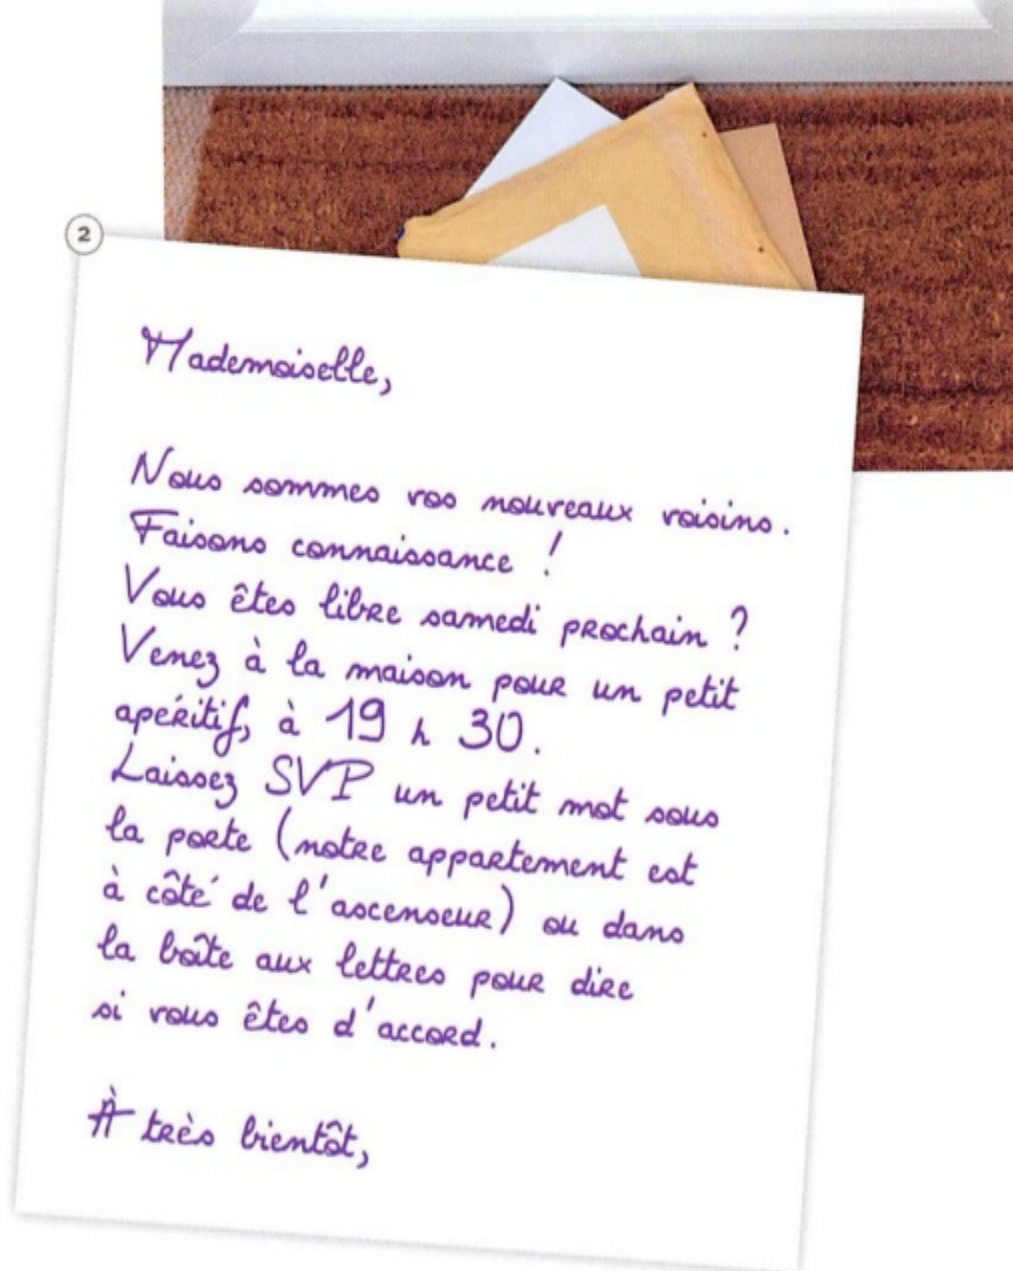 2
Mademoiselle,
Nous sommes vos nouveaux voisins.
Faisons connaissance !
Vous êtes libre samedi prochain ?
Venez à la maison pour un petit
apéritif, à 19 h 30.
Laissez SVP un petit mot sous
la porte (notre appartement est
à côté de l'ascenseur) ou dans
la boîte aux lettres pour dire
si vous êtes d'accord.
À très bientôt,